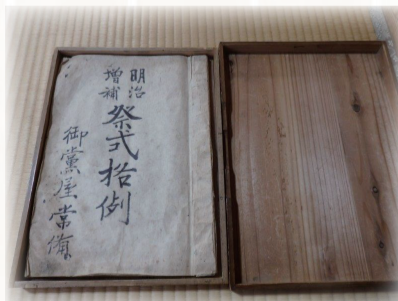 明治
增補
祭式格例
御黨屋常備